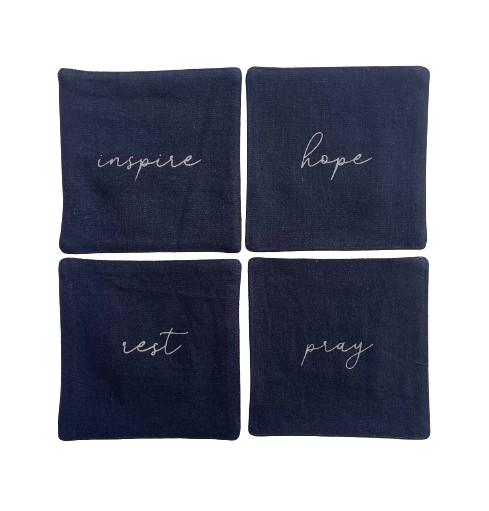 inspire
hope
rest
pray